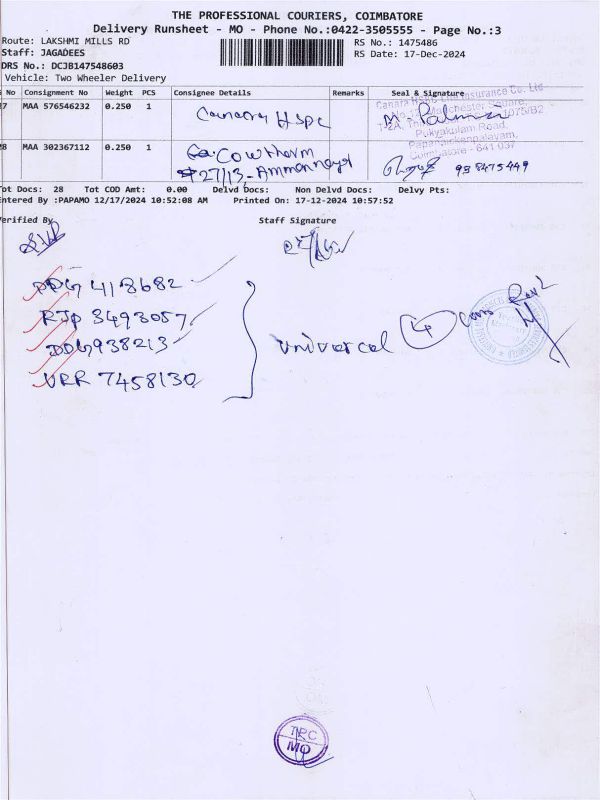 THE PROFESSIONAL COURIERS, COIMBATORE
Delivery Runsheet - MO - Phone No.:0422-3505555 - Page No.:3
Route: LAKSHMI MILLS RD
RS No.: 1475486
Staff: JAGADEES
RS Date: 17-Dec-2024
DRS No.: DCJB147548603
Vehicle: Two Wheeler Delivery
No Consignment No Weight PCS Consignee Details Remarks Seal & Signature
7 MAA 576546232 0.250 1 Canara Hspc
Canara HSBC Life Insurance Co. Ltd
Manchester Square,
Pukyakulam Road,
Papanaickenpalayam,
Coimbatore - 641 037
8 MAA 302367112 0.250 1 Cowtherm
27/13, Ammannagar
Tot Docs: 28 Tot COD Amt: 0.00 Delvd Docs: Non Delvd Docs: Delvy Pts:
Entered By :PAPAMO 12/17/2024 10:52:08 AM Printed On: 17-12-2024 10:57:52
Verified By Staff Signature
PDG 4118682
RJP 3493057
DDG 938213
VRR 7458130
univercal 4
TPC
MO